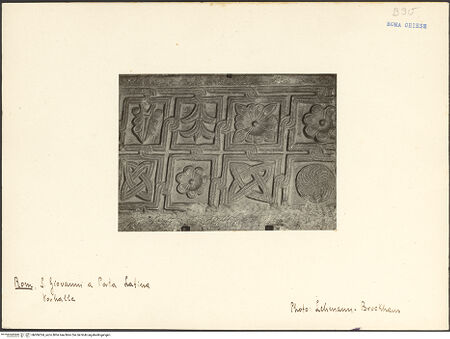 B 95
ROMA CHIESE
Rom. S. Giovanni a Porta Latina
Vorhalle
Photo: Lehmann-Brockhaus